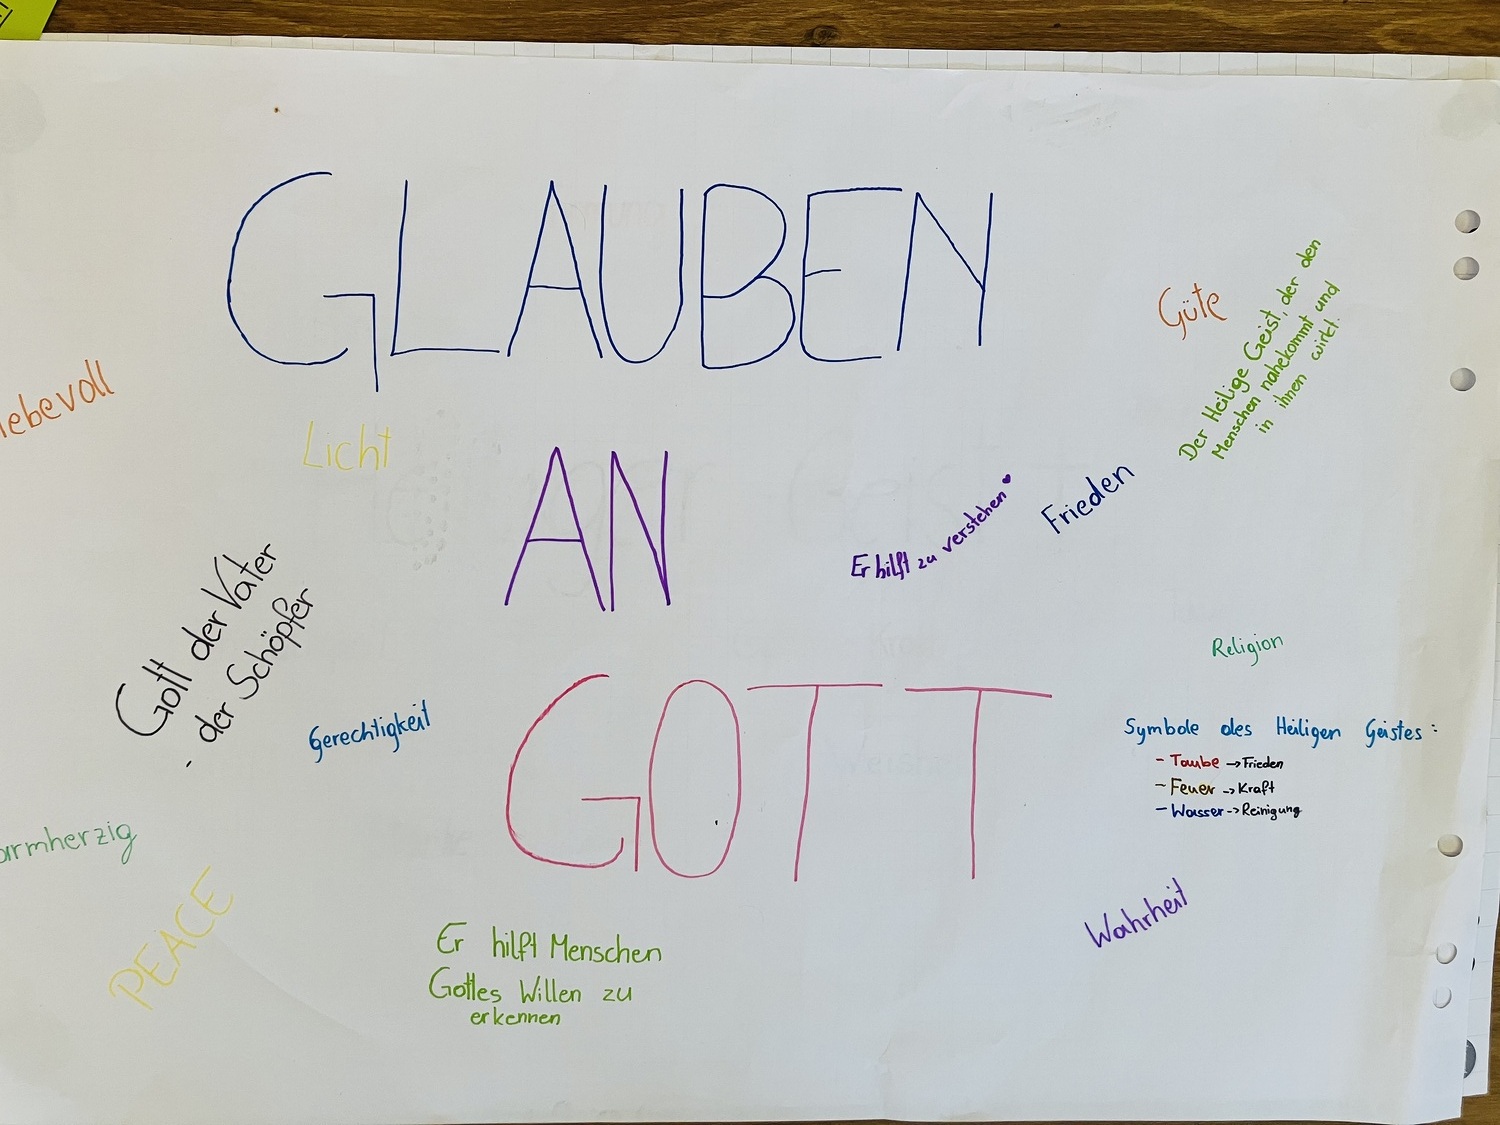 GLAUBEN
AN
GOTT
Licht
Güte
Der Heilige Geist, der den
Menschen nahekommt und
in ihnen wirkt.
Er hilft zu verstehen
Frieden
Gott der Vater
- der Schöpfer
Gerechtigkeit
Religion
Symbole des Heiligen Geistes:
- Taube -> Frieden
- Feuer -> Kraft
- Wasser -> Reinigung
PEACE
Er hilft Menschen
Gottes Willen zu
erkennen
Wahrheit
iebevoll
armherzig